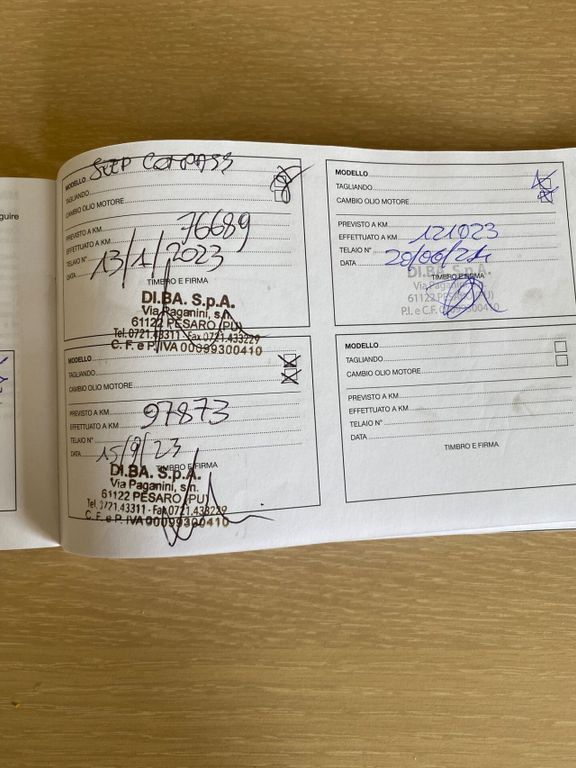 guire
JEEP COMPASS
MODELLO
TAGLIANDO
CAMBIO OLIO MOTORE
PREVISTO A KM
EFFETTUATO A KM 76689
TELAIO N°
DATA 13/1/2023
TIMBRO E FIRMA
DI.BA. S.p.A.
Via Paganini, s.n.
61122 PESARO (PU)
Tel. 0721.43311 - Fax 0721.433229
C. F. e P. IVA 00099300410
MODELLO
TAGLIANDO
CAMBIO OLIO MOTORE
PREVISTO A KM
EFFETTUATO A KM 97873
TELAIO N°
DATA 15/9/23
TIMBRO E FIRMA
DI.BA. S.p.A.
Via Paganini, s.n.
61122 PESARO (PU)
Tel. 0721.43311 - Fax 0721.433229
C. F. e P. IVA 00099300410
MODELLO
TAGLIANDO
CAMBIO OLIO MOTORE
PREVISTO A KM
EFFETTUATO A KM 121023
TELAIO N°
DATA 20/06/24
TIMBRO E FIRMA
DI.BA. S.p.A.
Via Paganini
61122 PESARO
P.I. e C.F.
MODELLO
TAGLIANDO
CAMBIO OLIO MOTORE
PREVISTO A KM
EFFETTUATO A KM
TELAIO N°
DATA
TIMBRO E FIRMA